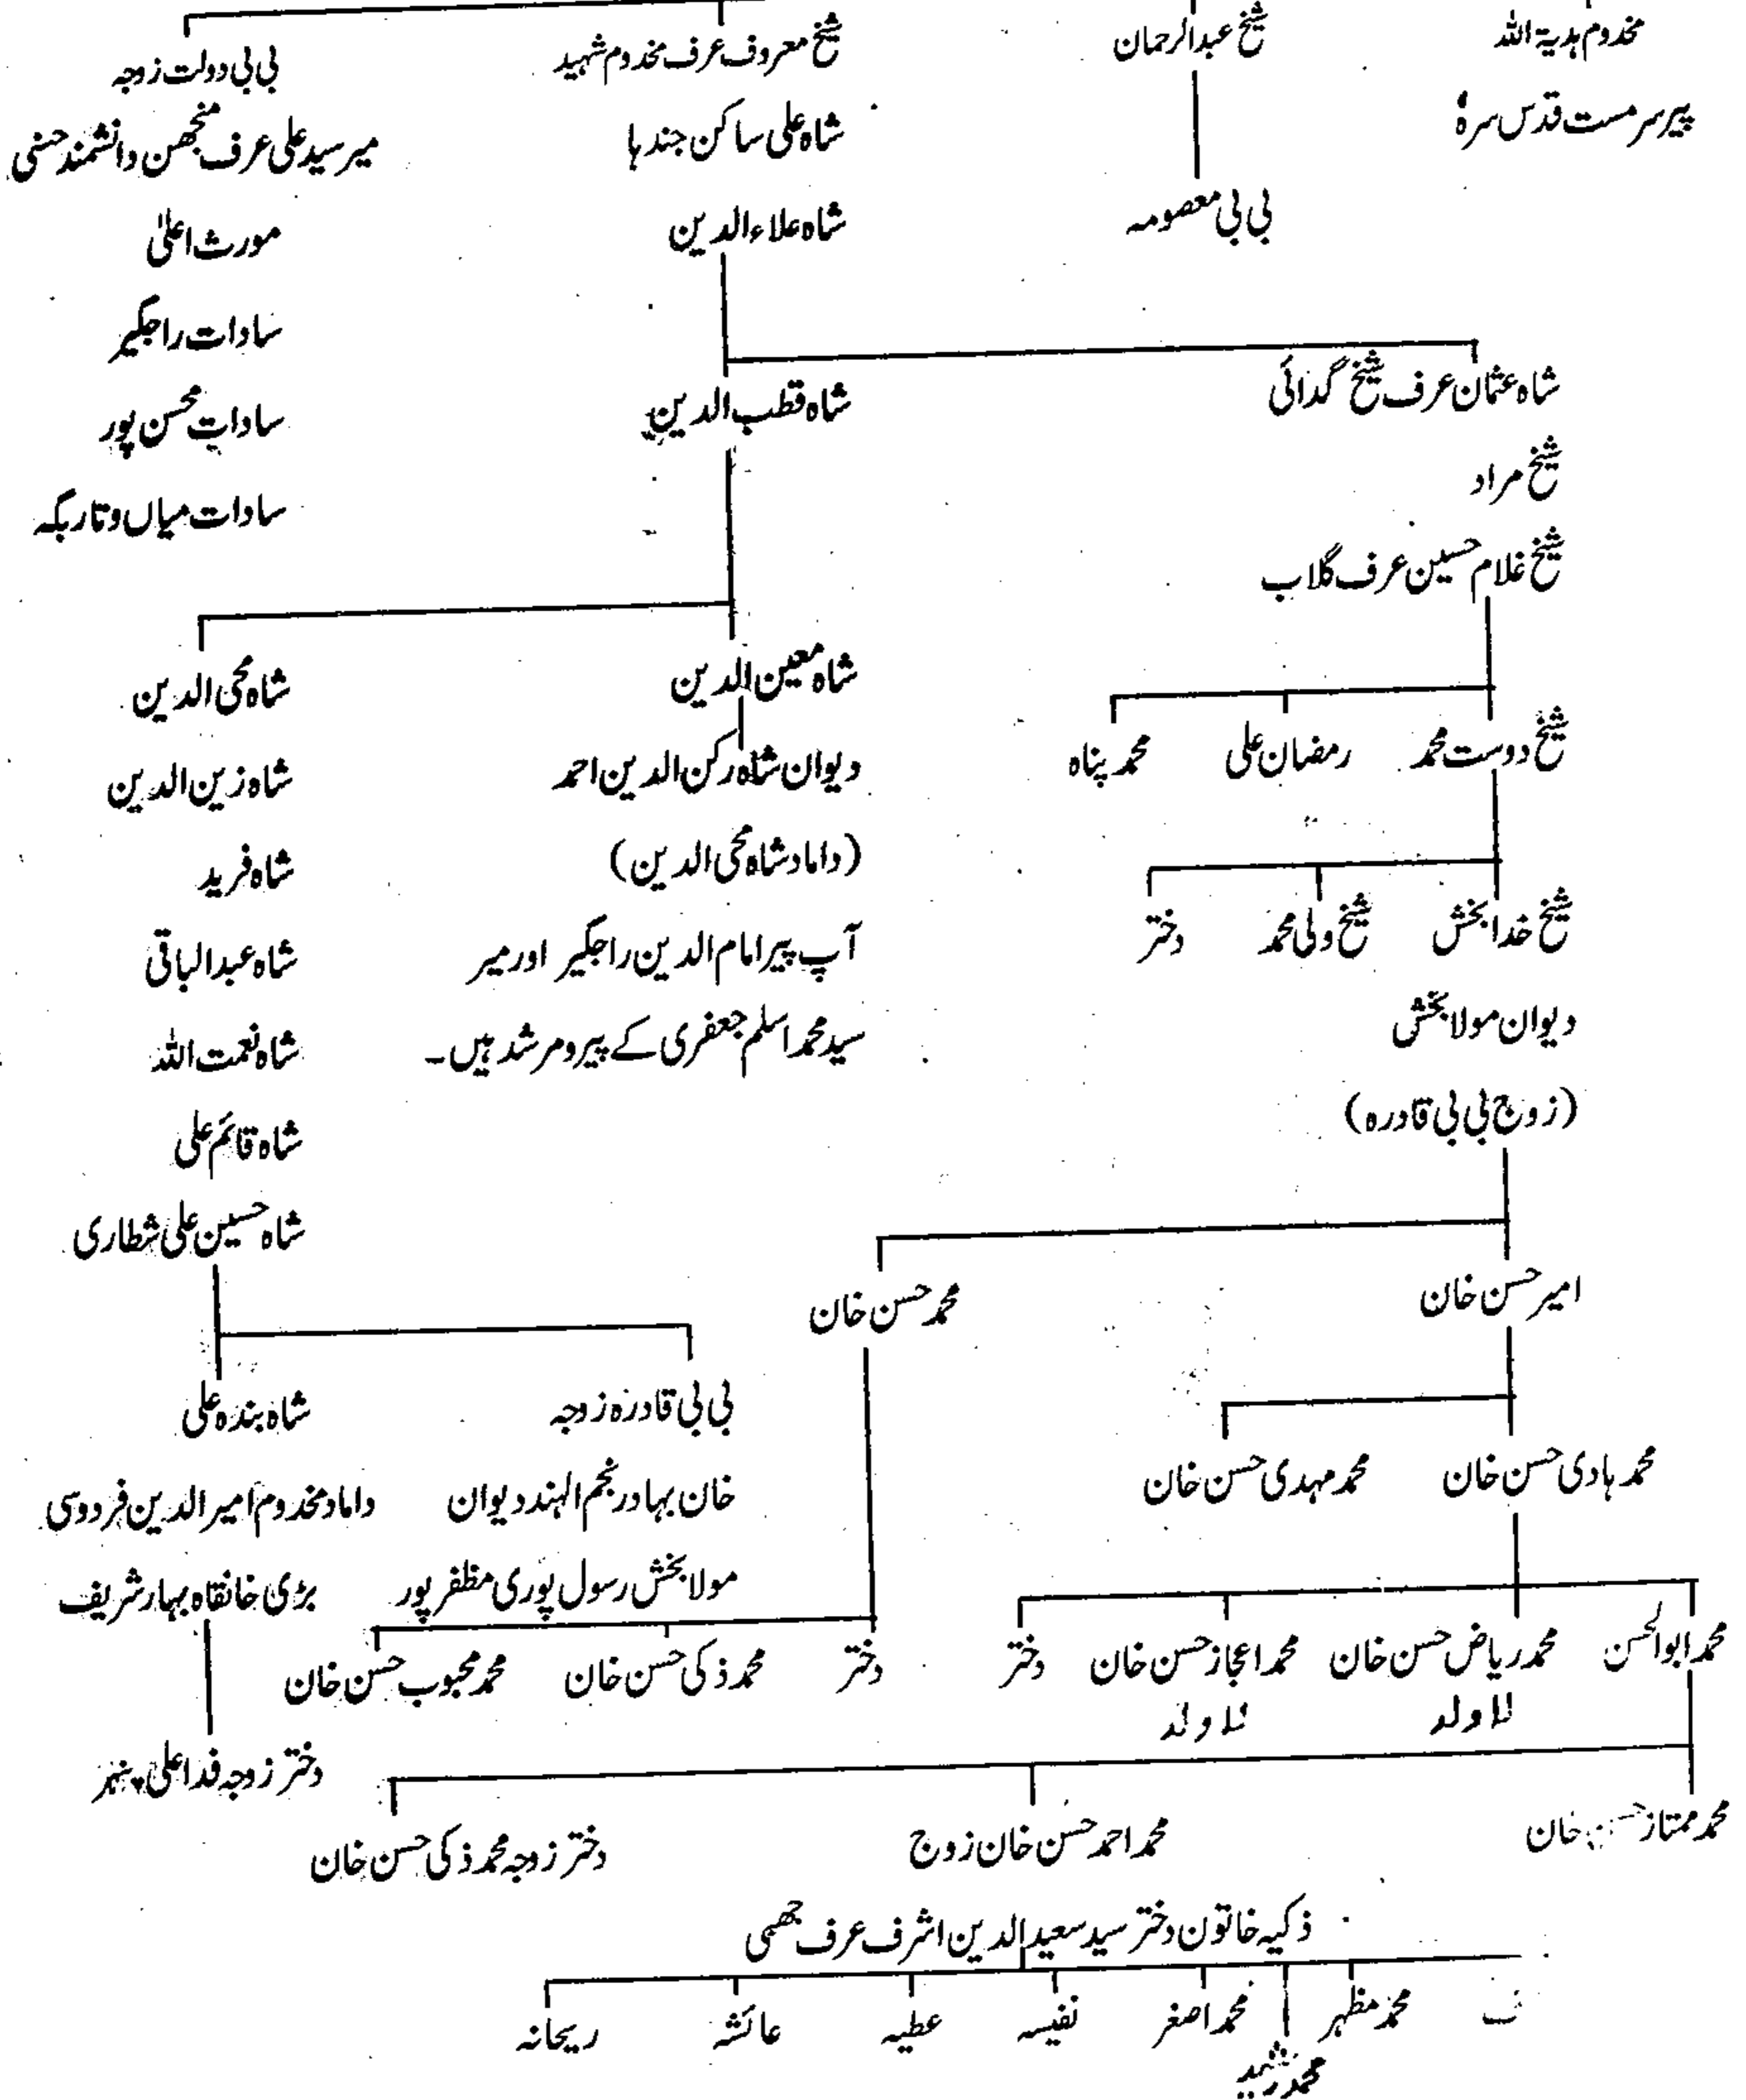 مخدوم ہدیۃ اللہ
پیر سرمست قدس سرہٗ
شیخ عبدالرحمان
بی بی معصومہ
شیخ معروف عرف مخدوم شہید
شاہ علی ساکن جندہا
شاہ علاءالدین
بی بی دولت زوجہ
میر سید علی عرف منجھن دانشمند حسنی
مورث اعلیٰ
سادات راجگیر
سادات محسن پور
سادات میاں وتاربگہ
شاہ عثمان عرف شیخ گدائی
شیخ مراد
شیخ غلام حسین عرف گلاب
شاہ قطب الدین
شیخ دوست محمد
رمضان علی
محمد پناہ
شیخ خدا بخش
شیخ ولی محمد
دختر
دیوان مولا بخش
(زوج بی بی قادرہ)
شاہ معین الدین
دیوان شاہ رکن الدین احمد
(داماد شاہ محی الدین)
آپ پیر امام الدین راجگیر اور میر
سید محمد اسلم جعفری کے پیر ومرشد ہیں۔
شاہ محی الدین
شاہ زین الدین
شاہ فرید
شاہ عبدالباقی
شاہ نعمت اللہ
شاہ قائم علی
شاہ حسین علی شطاری
امیر حسن خان
محمد حسن خان
بی بی قادرہ زوجہ
خان بہادر نجم الہند دیوان
مولا بخش رسول پوری مظفر پور
شاہ بندہ علی
داماد مخدوم امیر الدین فردوسی
بڑی خانقاہ بہار شریف
دختر زوجہ فدا علی
محمد ہادی حسن خان
محمد مہدی حسن خان
محمد ابوالحسن
محمد ریاض حسن خان
لا ولد
محمد اعجاز حسن خان
لا ولد
دختر
دختر
محمد ذکی حسن خان
محمد محبوب حسن خان
محمد ممتاز حسن خان
محمد احمد حسن خان زوج
دختر زوجہ محمد ذکی حسن خان
ذکیہ خاتون دختر سید سعید الدین اشرف عرف چھمی
محمد مظہر
محمد رشید
محمد اصغر
نفیسہ
عطیہ
عائشہ
ریحانہ